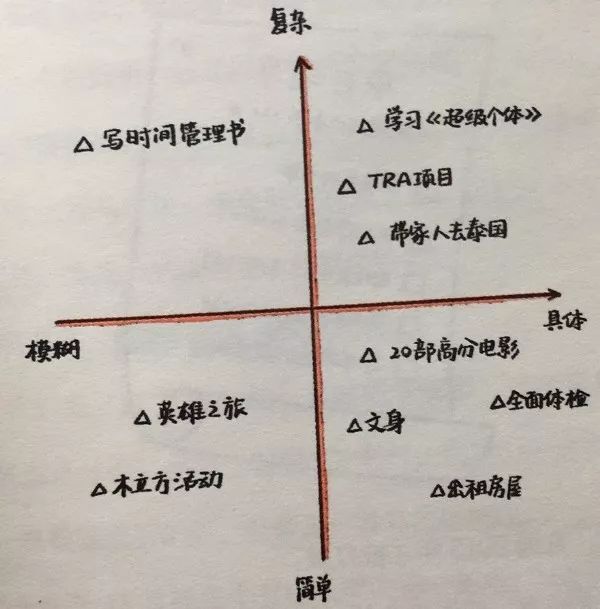 复杂
△ 写时间管理书
△ 学习《超级个体》
△ TRA项目
△ 带家人去泰国
模糊
具体
△ 20部高分电影
△ 全面体检
△ 英雄之旅
△ 文身
△ 木立方活动
△ 出租房屋
简单